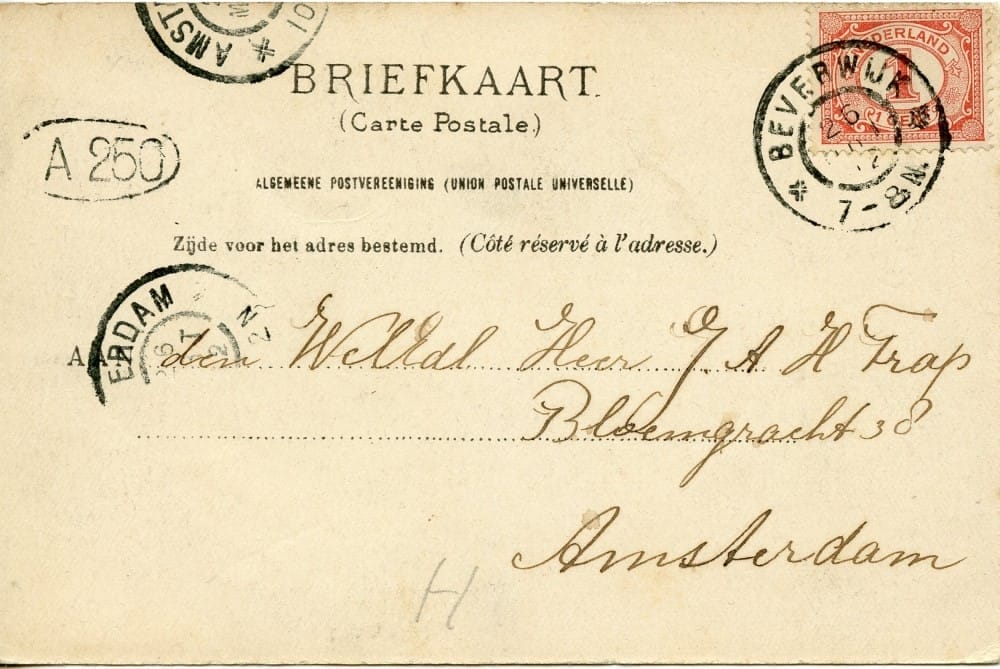 AMST 10
BRIEFKAART.
(Carte Postale.)
NEDERLAND
1
BEVERWIJK
7-8 N
A 250
ALGEMEENE POSTVEREENIGING (UNION POSTALE UNIVERSELLE)
Zijde voor het adres bestemd. (Côté réservé à l'adresse.)
ERDAM
AA
den WelEdl Heer J A H Trap
Bloemgracht 38
Amsterdam
H